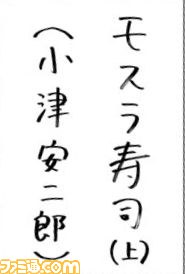 モスラ寿司(上)
(小津安二郎)
ファミ通.com